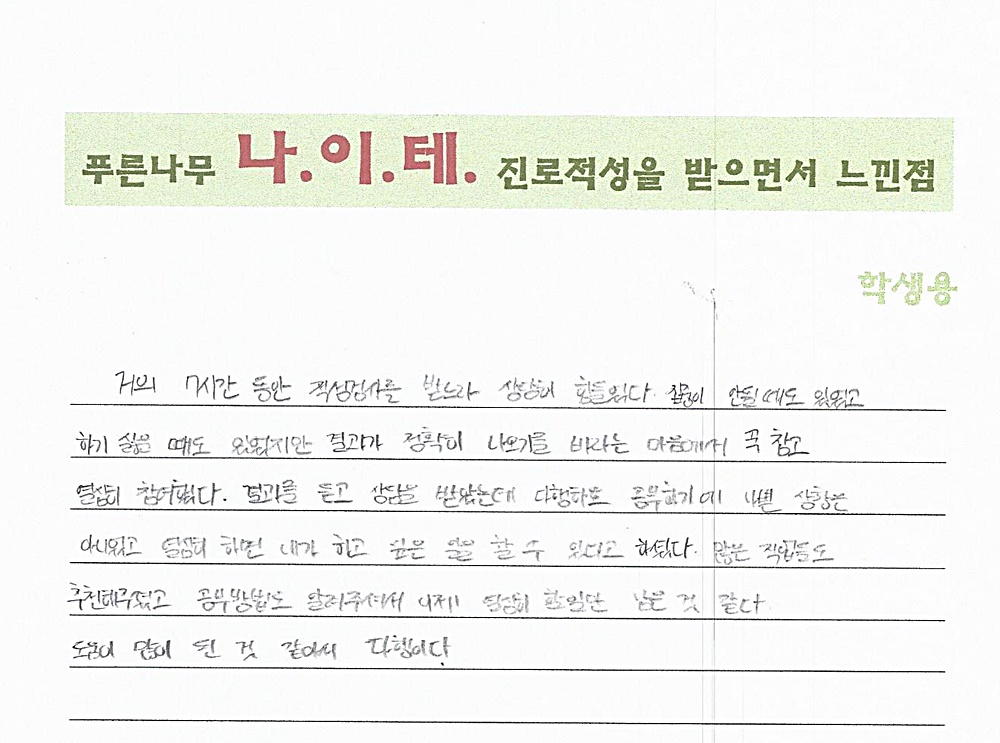 푸른나무 나.이.테. 진로적성을 받으면서 느낀점
학생용
거의 7시간 동안 적성검사를 받느라 상당히 힘들었다. 집중이 안될 때도 있었고
하기 싫을 때도 있었지만 결과가 정확히 나오기를 바라는 마음에서 꾹 참고
열심히 참여했다. 결과를 듣고 상담을 받았는데 다행하도 공부하기에 나쁜 상황은
아니었고 열심히 하면 내가 하고 싶은 일을 할 수 있다고 하셨다. 많은 직업들도
추천해주셨고 공부방법도 알려주셔서 이제 열심히 할 일만 남은 것 같다.
도움이 많이 된 것 같아서 다행이다.